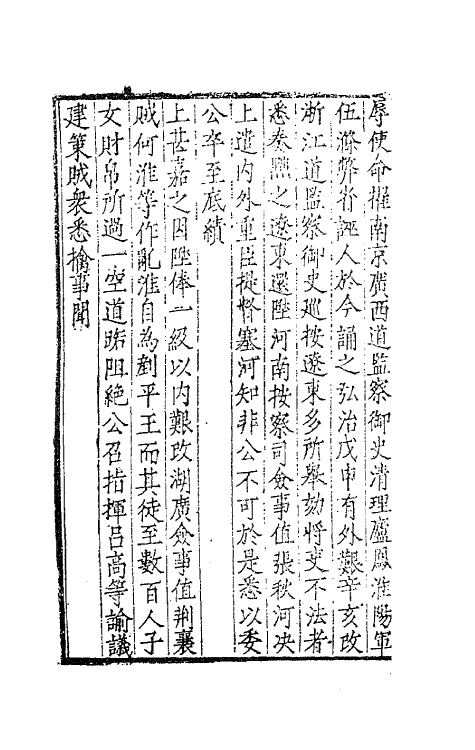 辱使命擢南京廣西道監察御史清理廬鳳淮陽軍
伍滌弊省誣人於今誦之弘治戊申有外艱辛亥改
浙江道監察御史巡按遼東多所舉劾將吏不法者
悉奏黜之遼東還陞河南按察司僉事值張秋河决
上遣内外重臣提督塞河知非公不可於是悉以委
公卒至底績
上甚嘉之因陞俸一級以内艱改湖廣僉事值荆襄
賊何淮等作亂淮自為剗平王而其徒至數百人子
女財帛所過一空道路阻絶公召指揮吕高等諭議
建策賊衆悉擒事聞